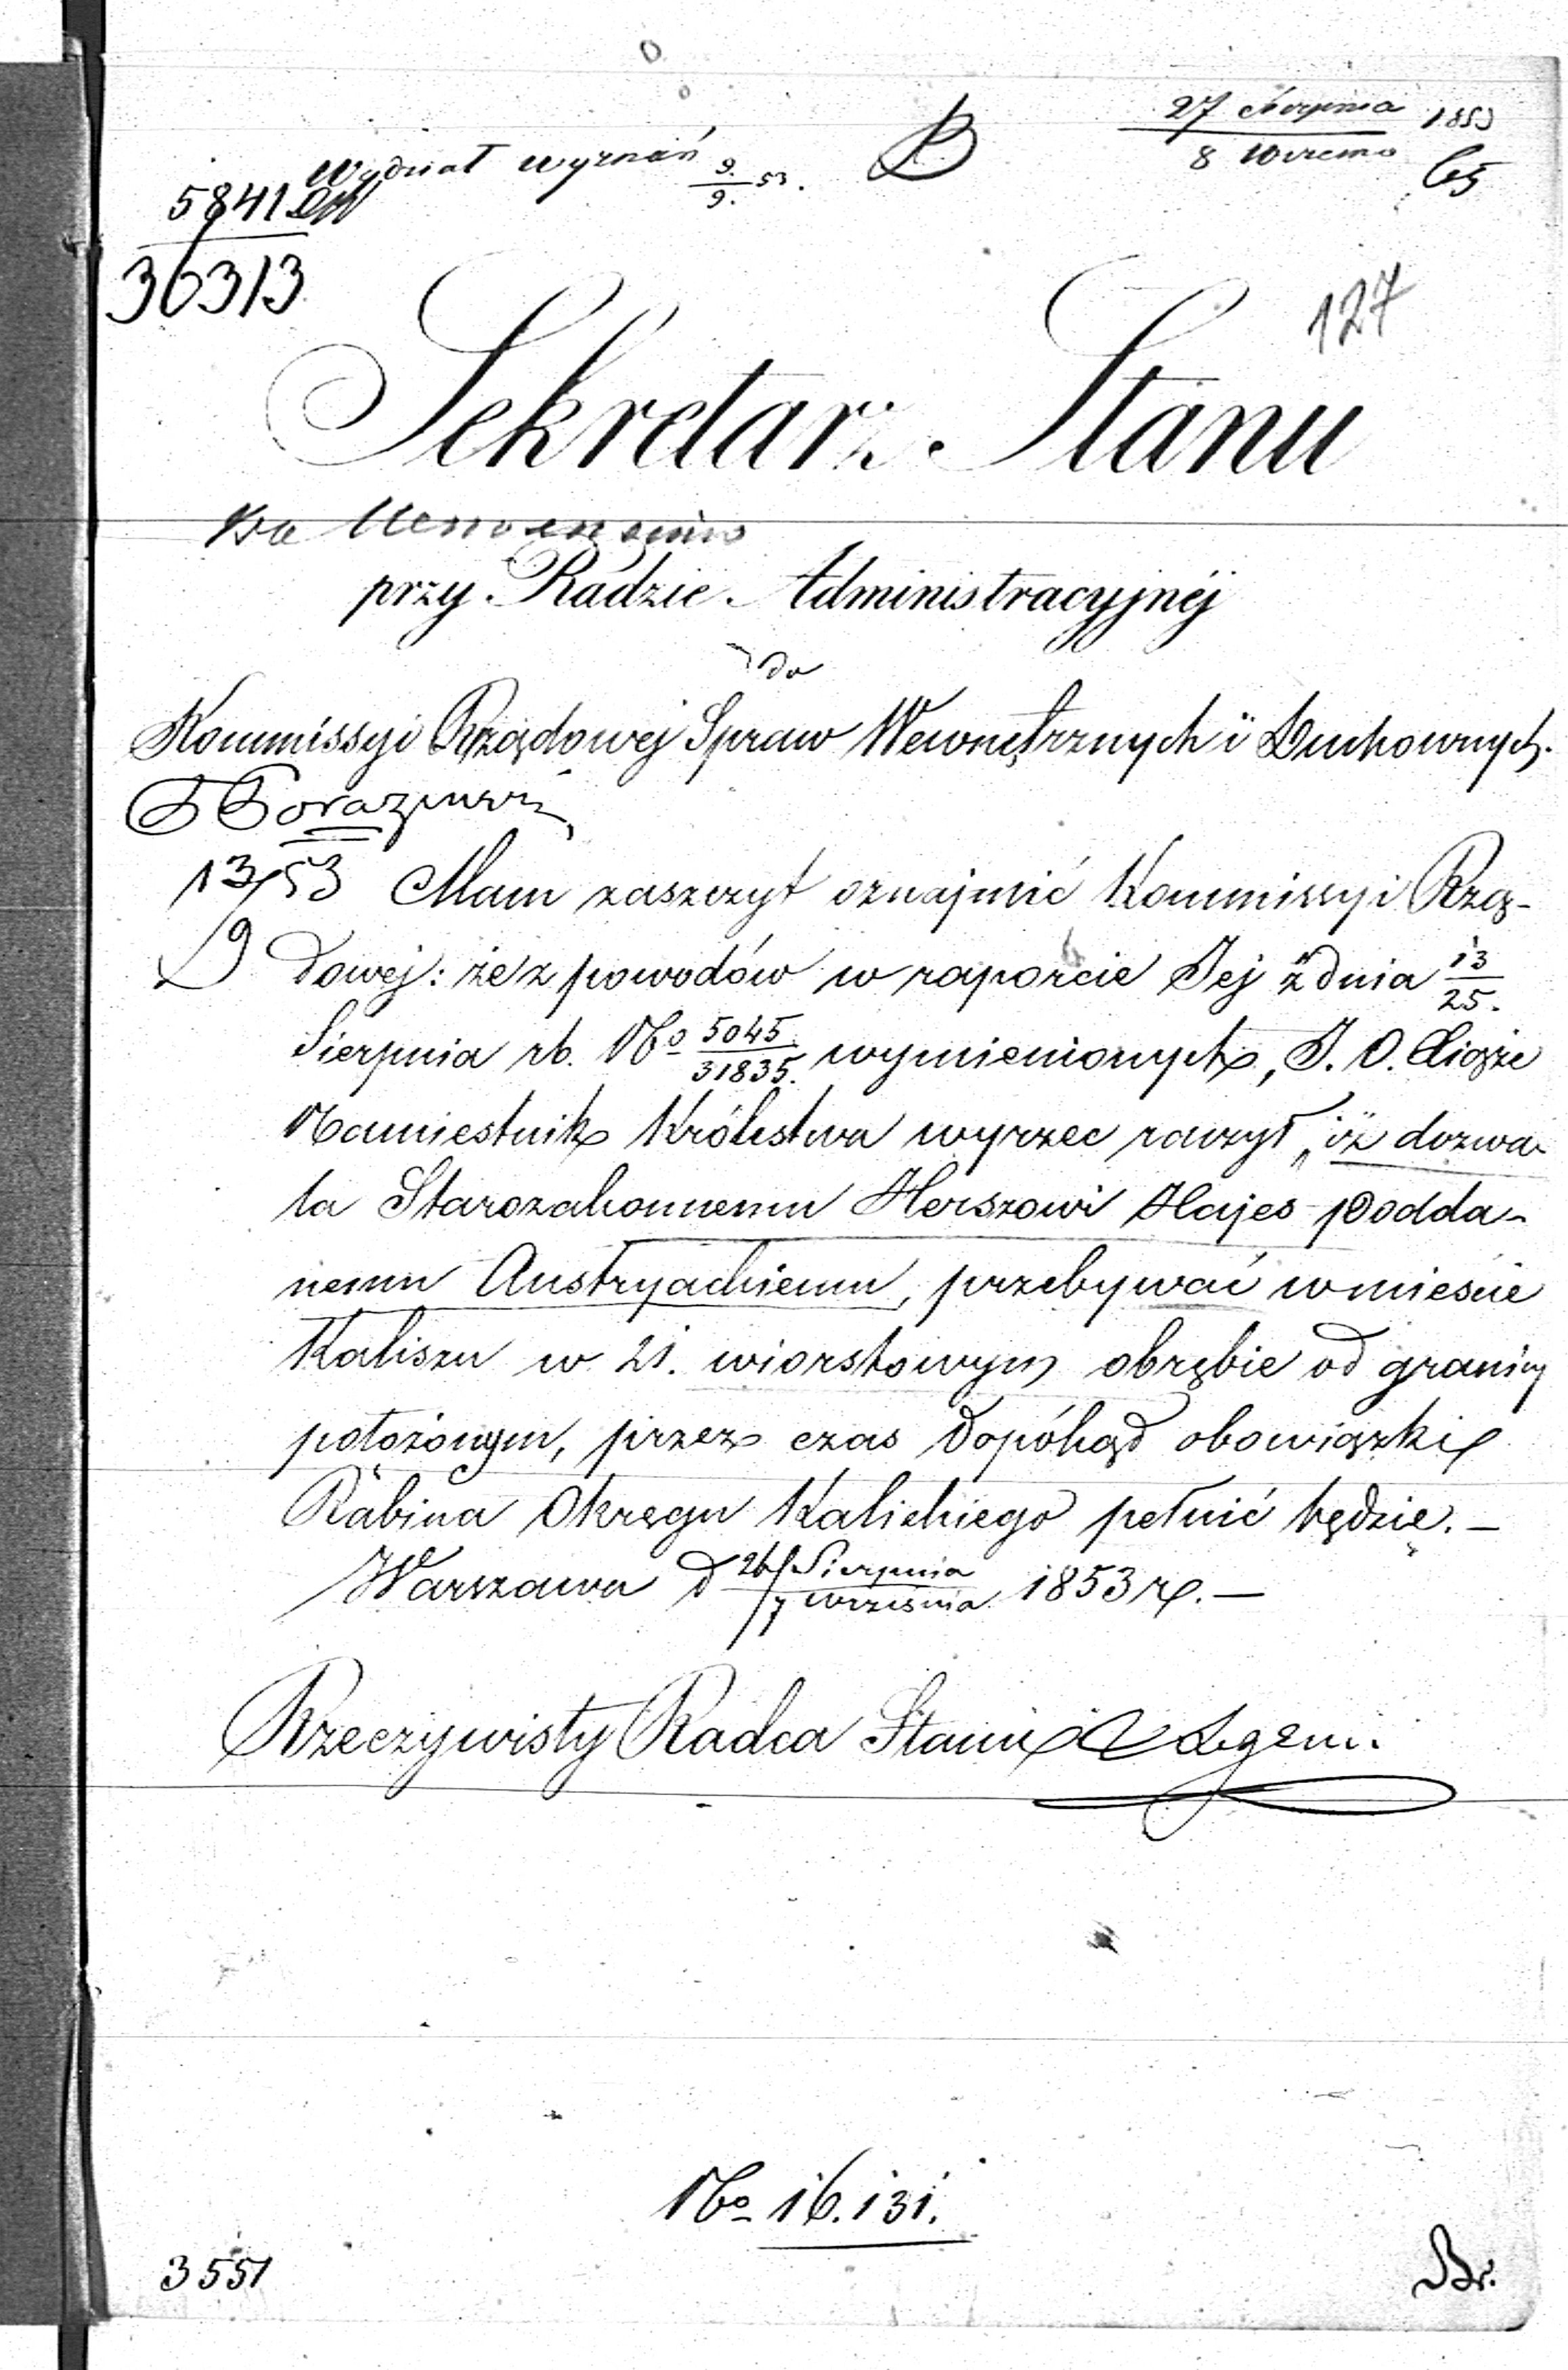 27 Sierpnia 1853
8 Wrzesnia
65
Wydział wyznań 9./9. 53.
5841
36313
127
Sekretarz Stanu
przy Radzie Administracyjnéj
do
Kommissyi Rządowej Spraw Wewnętrznych i Duchownych.
13/53 Mam zaszczyt oznajmić Kommissyi Rzą-
9 dowej: że z powodów w raporcie Jej z dnia 13/25.
Sierpnia rb. No 5045/31835. wymienionych, J. O. Xiąże
Namiestnik Królestwa wyrzec raczył, „iż dozwa-
la Starozakonnemu Herszowi Hajes podda-
nemu Austryackiemu, przebywać w mieście
Kaliszu w 21. wiorstowym obrębie od granicy
położonym, przez czas dopókąd obowiązki
Rabina Okręgu Kaliskiego pełnić będzie. —
Warszawa d 26 Sierpnia/7 Września 1853 r. —
Rzeczywisty Radca Stanu
No 16.131.
3551
Br.